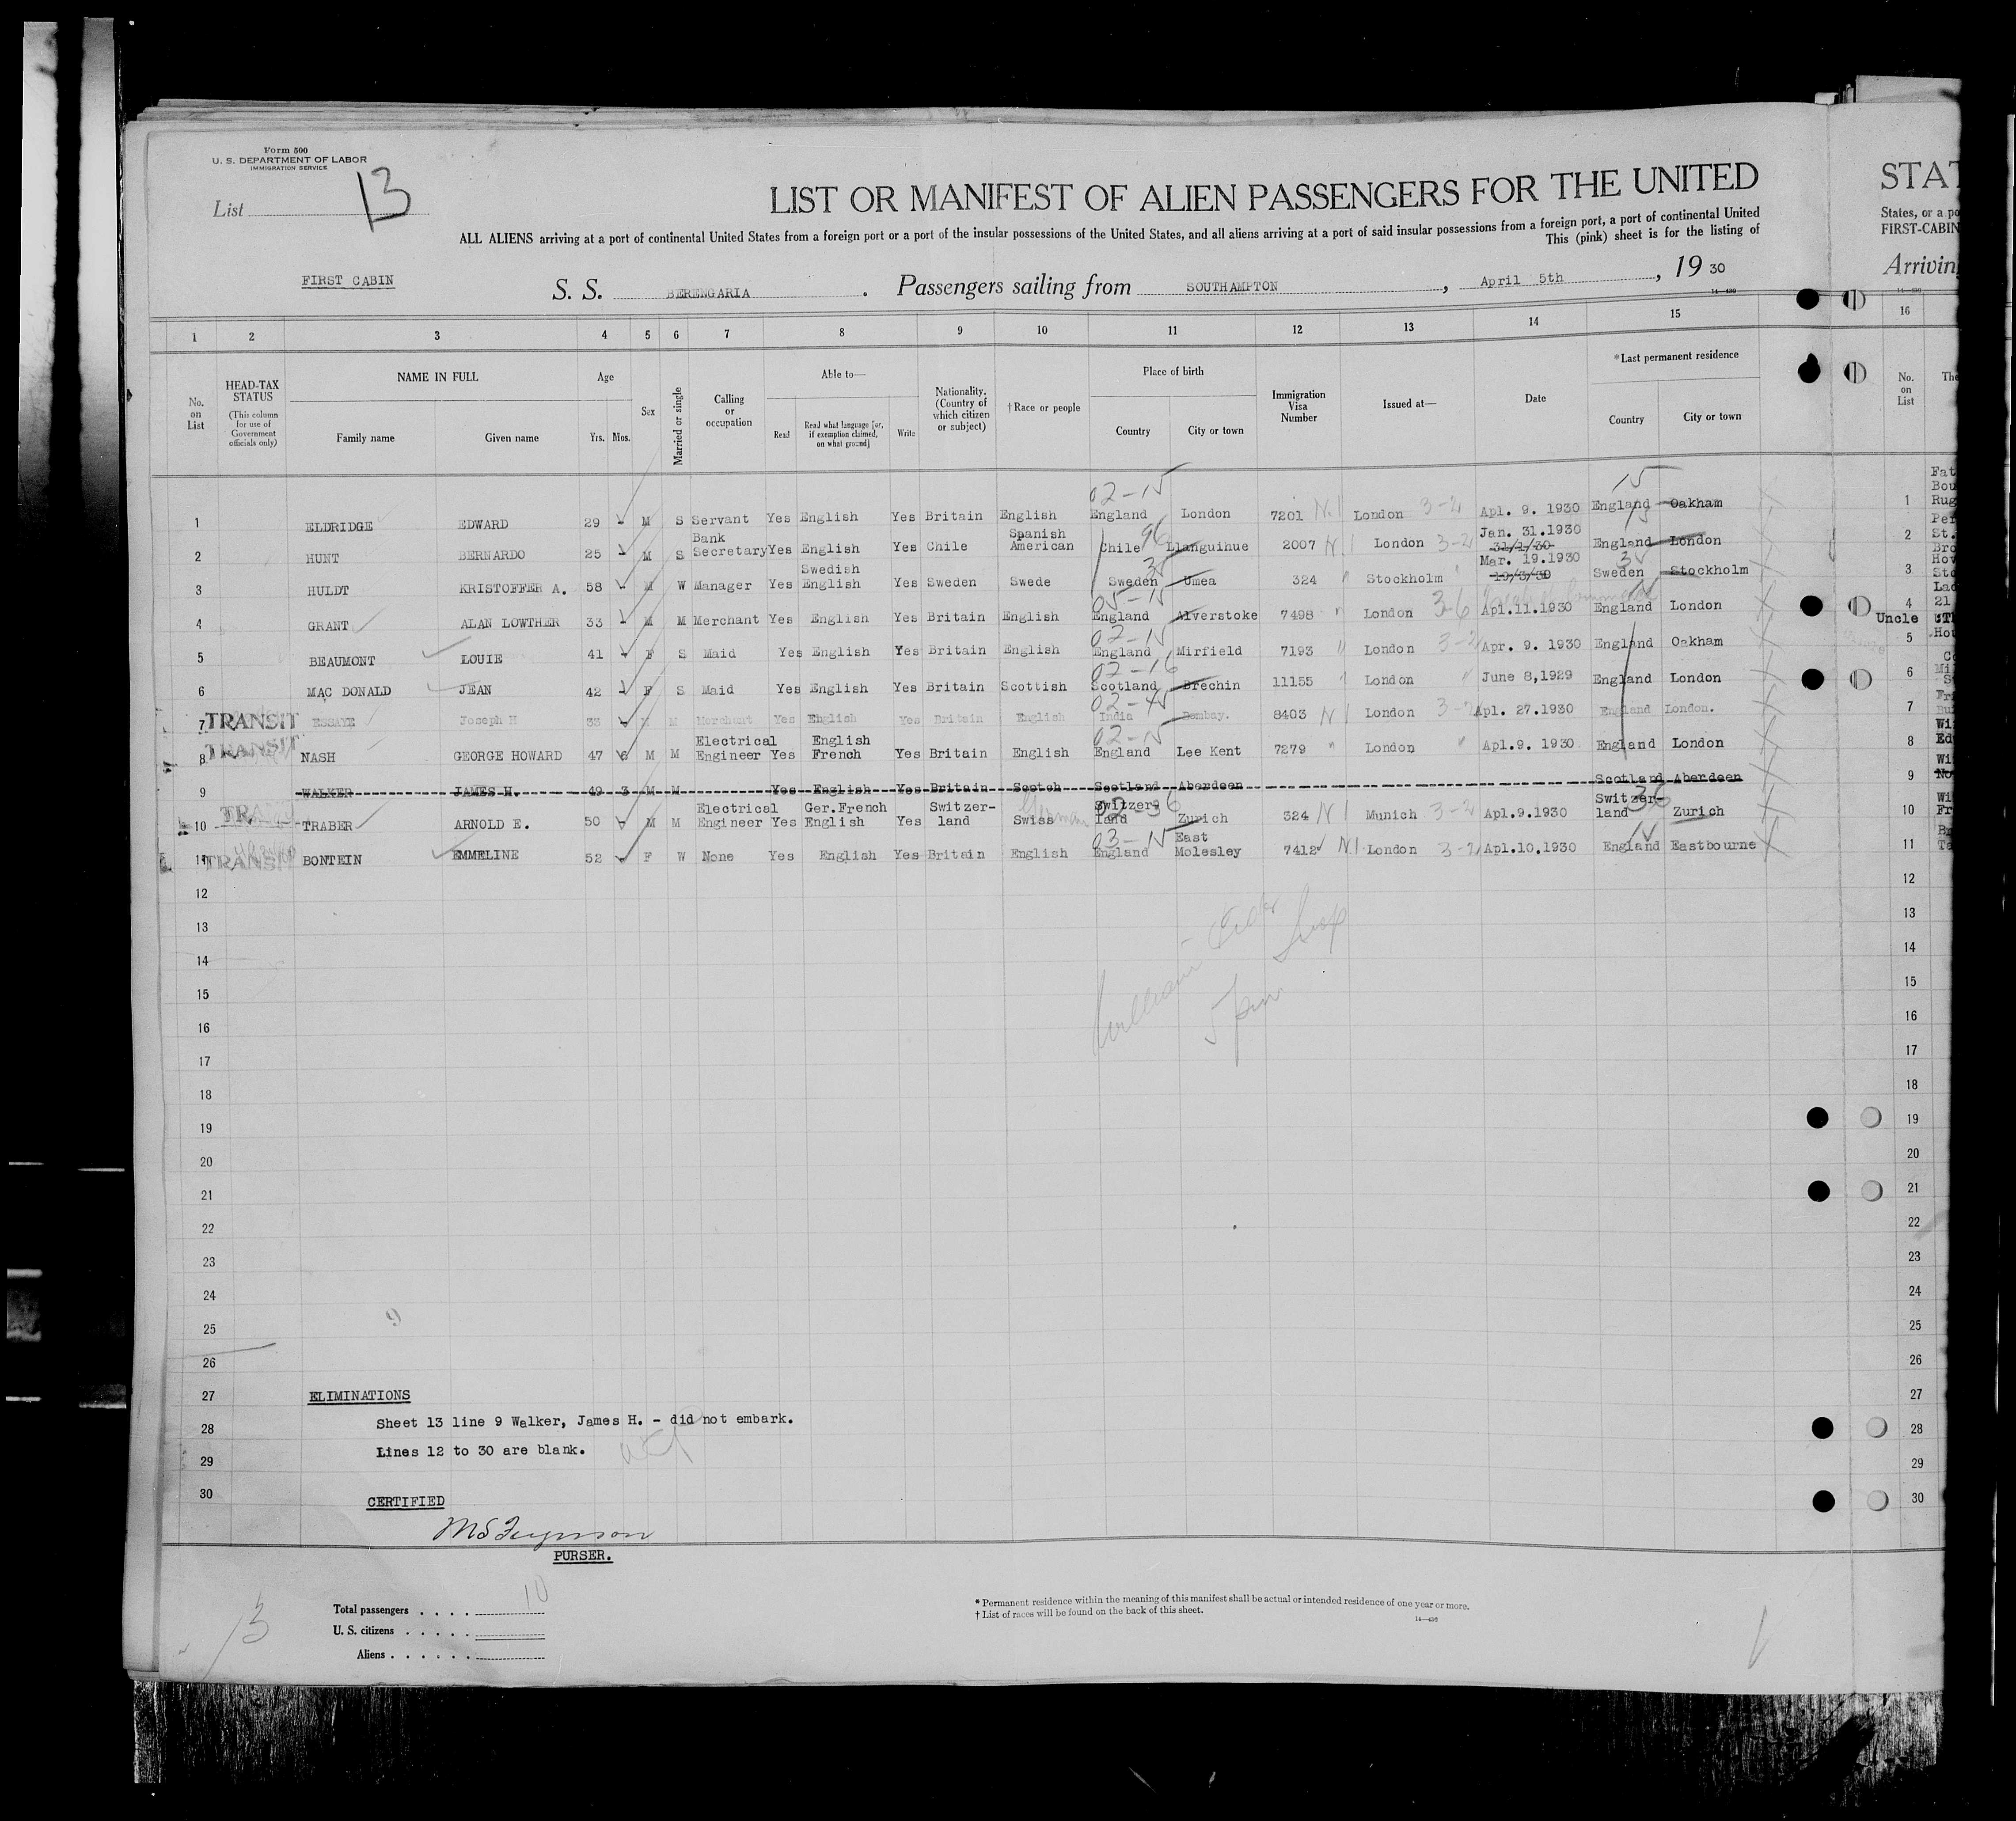 Form 500
U. S. DEPARTMENT OF LABOR
IMMIGRATION SERVICE
List 13
LIST OR MANIFEST OF ALIEN PASSENGERS FOR THE UNITED
STAT
ALL ALIENS arriving at a port of continental United States from a foreign port or a port of the insular possessions of the United States, and all aliens arriving at a port of said insular possessions from a foreign port, a port of continental United
States, or a po
This (pink) sheet is for the listing of
FIRST-CABIN
FIRST CABIN S. S. BERENGARIA. Passengers sailing from SOUTHAMPTON, April 5th, 19 30
Arriving
1 2 3 4 5 6 7 8 9 10 11 12 13 14 15 16
No. on List
HEAD-TAX STATUS (This column for use of Government officials only)
NAME IN FULL Family name Given name
Age Yrs. Mos.
Sex
Married or single
Calling or occupation
Able to— Read Read what language [or, if exemption claimed, on what ground] Write
Nationality. (Country of which citizen or subject)
†Race or people
Place of birth Country City or town
Immigration Visa Number
Issued at—
Date
*Last permanent residence Country City or town
No. on List
The
1 ELDRIDGE EDWARD 29 - M S Servant Yes English Yes Britain English 02-15 England London 7201 London 3-2 Apl. 9. 1930 15 England Oakham 1
2 HUNT BERNARDO 25 - M S Bank Secretary Yes English Yes Chile Spanish American Chile 96 Llanguihue 2007 London 3-2 Jan. 31.1930 31/1/30 15 England London 2
3 HULDT KRISTOFFER A. 58 - M W Manager Yes Swedish English Yes Sweden Swede Sweden 35 Umea 324 " Stockholm " Mar. 19.1930 19/3/30 35 Sweden Stockholm 3
4 GRANT ALAN LOWTHER 33 - M M Merchant Yes English Yes Britain English 05-15 England Alverstoke 7498 " London 3-6 Apl.11.1930 15 England London 4
5 BEAUMONT LOUIE 41 - F S Maid Yes English Yes Britain English 02-15 England Mirfield 7193 " London 3-2 Apr. 9. 1930 England Oakham 5
6 MAC DONALD JEAN 42 - F S Maid Yes English Yes Britain Scottish 02-16 Scotland Brechin 11155 " London " June 8,1929 England London 6
7 TRANSIT ESSAYE Joseph H 33 - M M Merchant Yes English Yes Britain English 02-45 India Bombay. 8403 London 3-2 Apl. 27.1930 England London. 7
8 TRANSIT NASH GEORGE HOWARD 47 6 M M Electrical Engineer Yes English French Yes Britain English 02-15 England Lee Kent 7279 " London " Apl.9. 1930 England London 8
9 WALKER JAMES H. 49 3 M M Yes English Yes Britain Scotch Scotland Aberdeen Scotland Aberdeen 9
10 TRABER ARNOLD E. 50 - M M Electrical Engineer Yes Ger.French English Yes Switzer-land Swiss German Switzer-land Zurich 324 Munich 3-2 Apl.9.1930 Switzer-land 36 Zurich 10
11 TRANSIT BONTEIN EMMELINE 52 - F W None Yes English Yes Britain English 03-15 England East Molesley 7412 London 3-2 Apl.10.1930 15 England Eastbourne 11
Uncle
12 12
13 13
14 14
15 15
16 16
17 17
18 18
19 19
20 20
21 21
22 22
23 23
24 24
25 25
26 26
27 ELIMINATIONS 27
28 Sheet 13 line 9 Walker, James H. - did not embark. 28
29 Lines 12 to 30 are blank. 29
30 30
CERTIFIED
PURSER.
Total passengers . . . . 10
U. S. citizens . . . . .
Aliens . . . . . .
13
* Permanent residence within the meaning of this manifest shall be actual or intended residence of one year or more.
† List of races will be found on the back of this sheet.